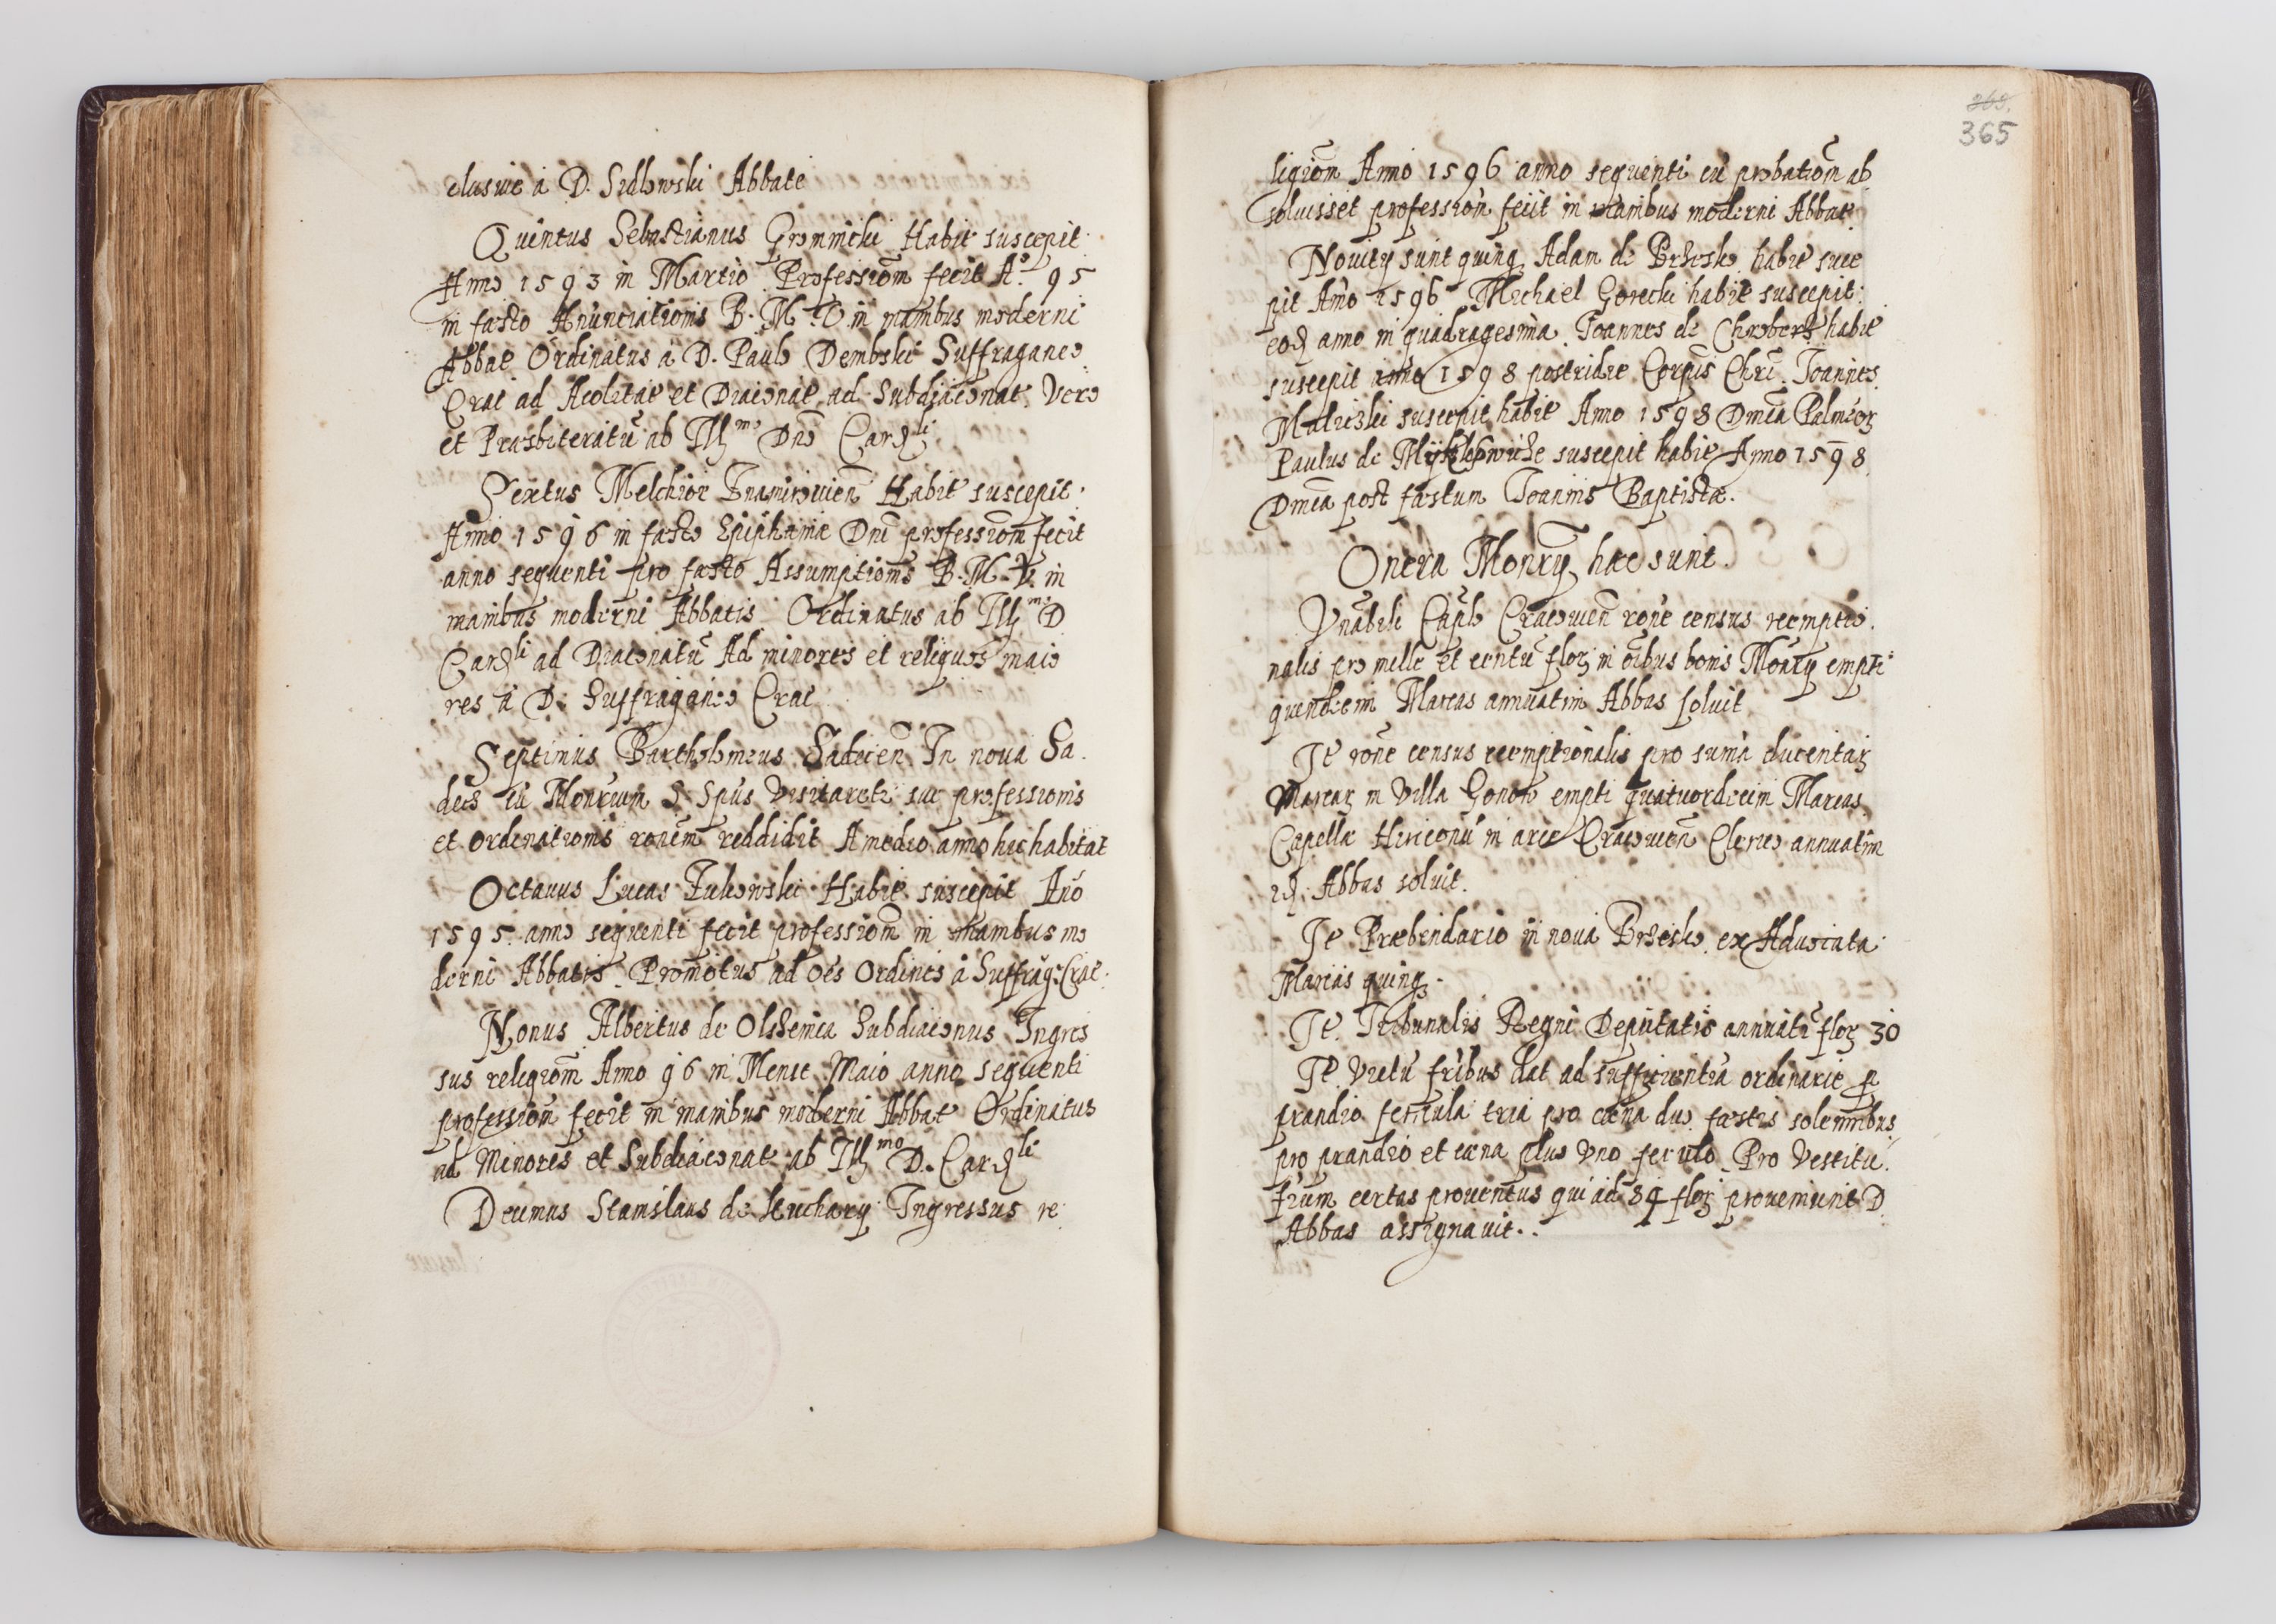 clusive á D. Sidlowski Abbate
Quintus Sebastianus Gromnicki Habit suscepit
Anno 1593 in Martio Professiom̃ fecit Aº. 95
in fæsto Anunciationis B. M. V. in manibus moderni
Abbat Ordinatus á D. Paulo Dembski Suffraganeo
Crac ad Acolitat et Diaconat, ad Subdiaconat. Vero
et Præsbiteratū ab Ill mo Dno Card li
Sextus Melchior Habit suscepit.
Anno 1596 in fæsto Epiphaniæ Dni professiom̃ fecit
anno sequenti pro fæsto Assumptionis B. M. V. in
manibus moderni Abbatis Ordinatus ab Ill mo D
Card li ad Diaconatū Ad minores et reliquos maio
res á D. Suffraganeo Crac
Septimus Bartholomeus Sadecen̄ In nova Sa
decz cū Monrium S Spūs Visitaret suæ professionis
et ordinationis ronem reddidit A medio anno hic habitat
Octavus Lucas Zukowski Habit suscepit Ano
1595. anno sequenti fecit professiom̃ in manibus mo
derni Abbatis. Promotus ad oēs Ordines á Suffrag: Crac.
Nonus Albertus de Olszenica Subdiaconus Ingres
sus religiom̃ Anno 96 in Mense Maio anno sequenti
professiom̃ fecit in manibus moderni Abbat Ordinatus
ad Minores et Subdiaconat ab Ill mo D. Card li
Decimus Stanislaus de Ingressus re
365
ligiom̃ Anno 1596 anno sequenti cū probatiom̃ ab
solvisset professiom̃ fecit in manibus moderni Abbat
Novitÿ sunt quinq Adam de Brzesko habit susce
pit Ano 1596 Michael Gorecki habit suscepit
eod anno in quadragesima. Joannes de habit
suscepit anno 1598 postridie Corpūs Chri. Joannes
suscepit habit Anno 1598 Dmca Palmaor
Paulus de suscepit habit Anno 1598
Dmca post fæstum Joannis Baptistæ.
Onera Monrÿ hæc sunt.
Vnabili Caplo Cracovien rone census reempti.
nalis pro mille et centū flor in oibus bonis Monrÿ empti
quindecim Marcas annuatim Abbas soluit
It rone census reemptionalis pro suma ducentar
Marcar in Villa empti quatuordecim Marcas
Capellæ in arce Cracovien Clerico annuatim
id. Abbas soluit.
It Præbendario in nova Brzesko ex Aduocatia
Marcas quinq
It. Tribunalis Regni Deputatis annuati flor 30
It Victū fribus dat ad sufficientiā ordinarie p
prandio fercula tria pro cæna duo fæstis solennibus
pro prandio et cæna plus vno ferculo Pro Vestitu
frum certos proventus qui ad 84 flor proveniunt D
Abbas assignavit..